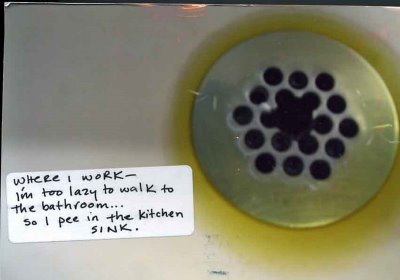 WHERE I WORK—
I'm too lazy to walk to
the bathroom...
so I pee in the kitchen
SINK.